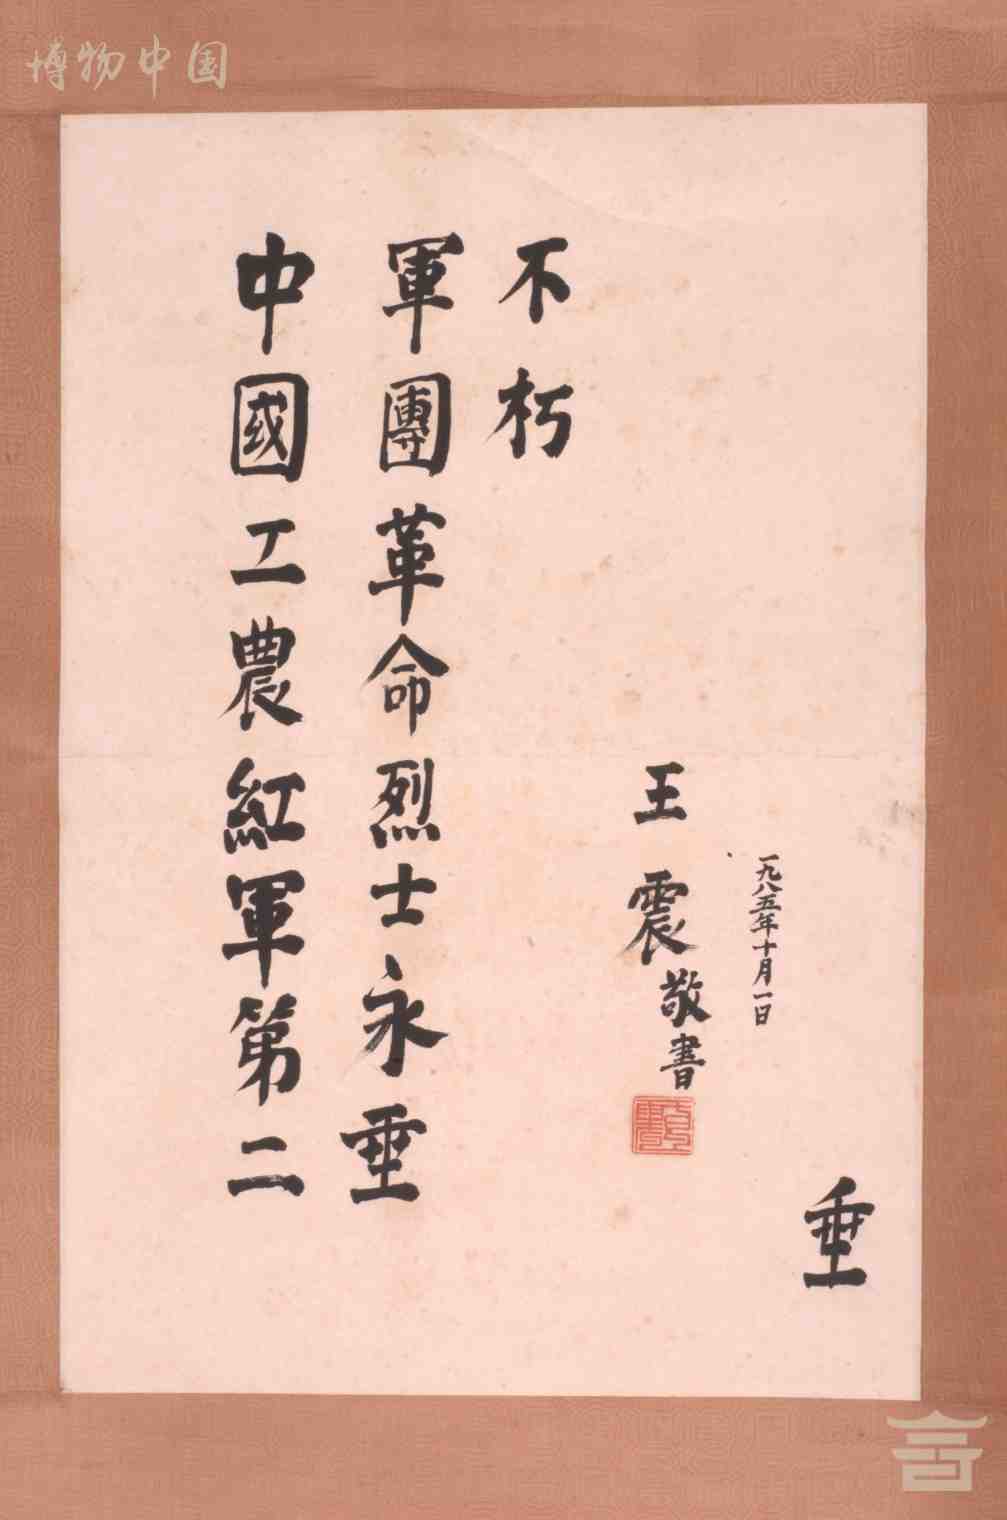 博物中国
中國工農紅軍第二
軍團革命烈士永垂
不朽
王震敬書
一九八五年十月一日
垂